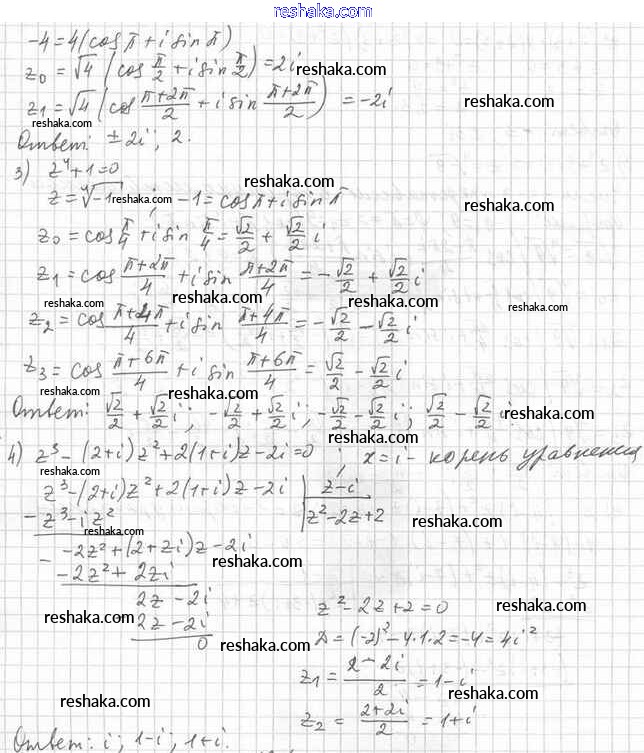 reshaka.com
-4=4(cos π+i sin π)
z₀=√4(cos π/2+i sin π/2)=2i
reshaka.com
z₁=√4(cos (π+2π)/2+i sin (π+2π)/2)=-2i
reshaka.com
reshaka.com
Ответ: ±2i; 2.
3) z⁴+1=0
reshaka.com
z=⁴√-1; -1=cos π+i sin π
reshaka.com
reshaka.com
z₀=cos π/4+i sin π/4=√2/2+√2/2 i
reshaka.com
z₁=cos (π+2π)/4+i sin (π+2π)/4=-√2/2+√2/2 i
reshaka.com reshaka.com reshaka.com
z₂=cos (π+4π)/4+i sin (π+4π)/4=-√2/2-√2/2 i
z₃=cos (π+6π)/4+i sin (π+6π)/4=√2/2-√2/2 i
reshaka.com reshaka.com
Ответ: √2/2+√2/2 i; -√2/2+√2/2 i; -√2/2-√2/2 i; √2/2-√2/2 i.
reshaka.com
4) z³-(2+i)z²+2(1+i)z-2i=0; x=i- корень уравнения
reshaka.com
z³-(2+i)z²+2(1+i)z-2i | z-i
- z³-iz² | z²-2z+2
reshaka.com
reshaka.com
- -2z²+(2+2i)z-2i
reshaka.com
-2z²+2zi
2z-2i
z²-2z+2=0
reshaka.com
- 2z-2i
reshaka.com
0
reshaka.com
D=(-2)²-4·1·2=-4=4i²
z₁=(2-2i)/2=1-i
reshaka.com
reshaka.com
z₂=(2+2i)/2=1+i
Ответ: i; 1-i; 1+i.